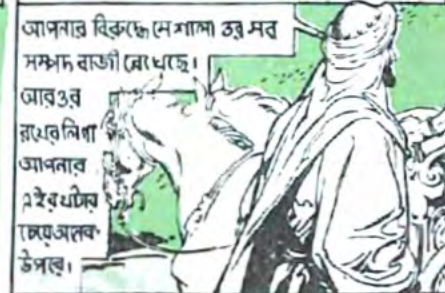 আপনার বিরুদ্ধে সে শালা তর সব
সম্পদ বাজী রেখেছে।
আর ওর
রথের লিগা
আপনার
এই রথটার
চেয়ে অনেক
উপরে।